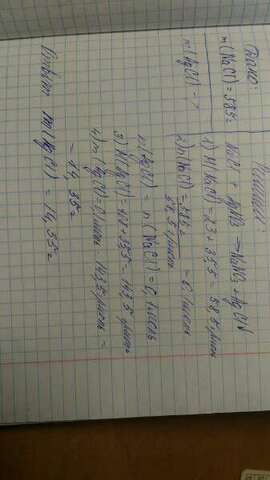 Дано:
m(NaCl) = 5,85г
m(AgCl) - ?
Решение:
NaCl + AgNO3 → NaNO3 + AgCl↓
1) M(NaCl) = 23 + 35,5 = 58,5 г/моль
2) n(NaCl) = 5,85г / 58,5 г/моль = 0,1 моль
n(AgCl) = n(NaCl) = 0,1 моль
3) M(AgCl) = 108 + 35,5 = 143,5 г/моль
4) m(AgCl) = 0,1 моль · 143,5 г/моль =
= 14,35г
Ответ: m(AgCl) = 14,35г